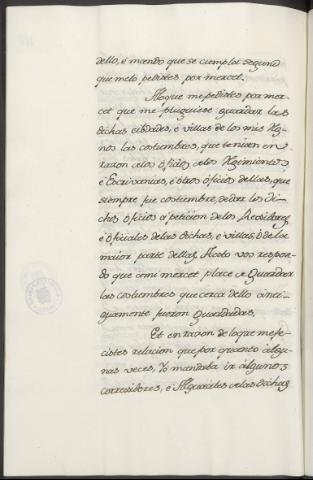 dello, é mando que se cumpla segund
que melo pedistes por mercet.
Aloque me pedistes por mer-
cet que me pluguiese guardar las
dichas cibdades, é villas de los mis Rey-
nos las costumbres, que tenian en
razon celos oficios celos Regimientos
é Escrivanias, é otros oficios dellas, que
siempre fue costumbre, sedar los di-
chos oficios á peticion delos Regidores,
é oficiales de las dichas, é villas, ó de la
maior parte dellas. Aesto vos respon-
do que ami mercet place de Guardar
las costumbres que cerca dello anti-
guamente fueron guardadas.
Et en razon de loque me fe-
cistes relacion que por quanto algu-
nas veces, Yo mandaba ir algunos
corregidores, é Alguaciles alas dichas